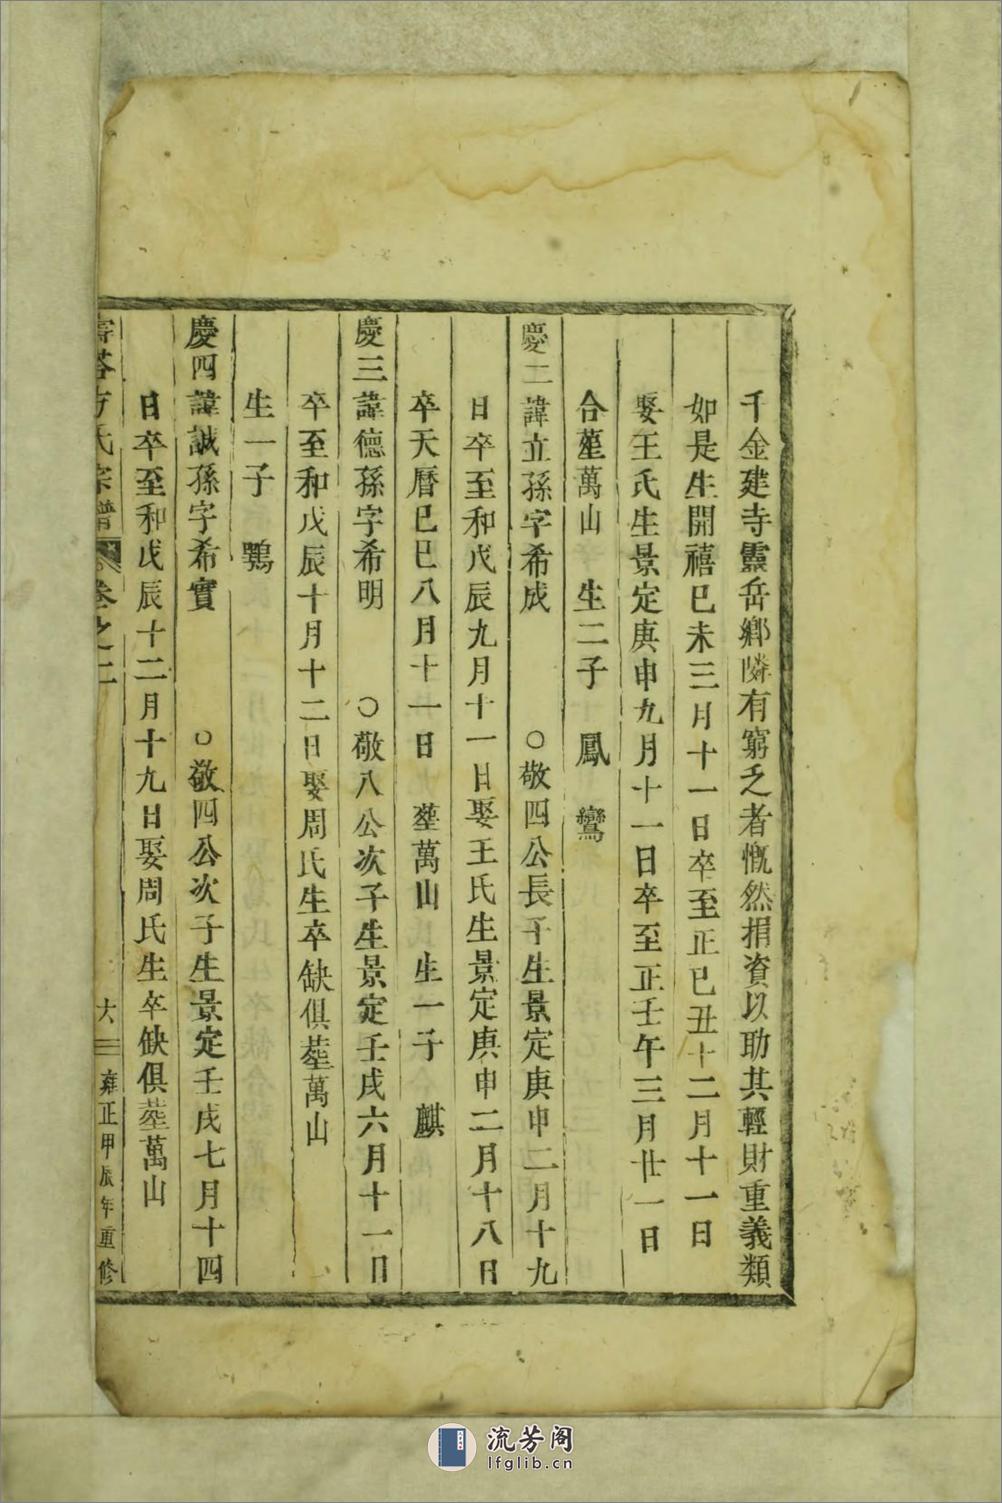 千金建寺靈岳鄉隣有窮乏者慨然捐資以助其輕財重義類
如是生開禧巳未三月十一日卒至正巳丑十二月十一日
娶王氏生景定庚申九月十一日卒至正壬午三月廿一日
合塟萬山 生二子 鳳 鸞
慶二諱立孫字希成 ○敬四公長子生景定庚申二月十九
日卒至和戊辰九月十一日娶王氏生景定庚申二月十八日
卒天曆巳巳八月十一日 塟萬山 生一子 麒
慶三諱德孫字希明 ○敬八公次子生景定壬戌六月十一日
卒至和戊辰十月十二日娶周氏生卒缺俱塟萬山
生一子 鶚
慶四諱誠孫字希實 ○敬四公次子生景定壬戌七月十四
日卒至和戊辰十二月十九日娶周氏生卒缺俱塟萬山
方氏宗譜 卷之二 六 雍正甲辰年重修
流芳阁
lfglib.cn